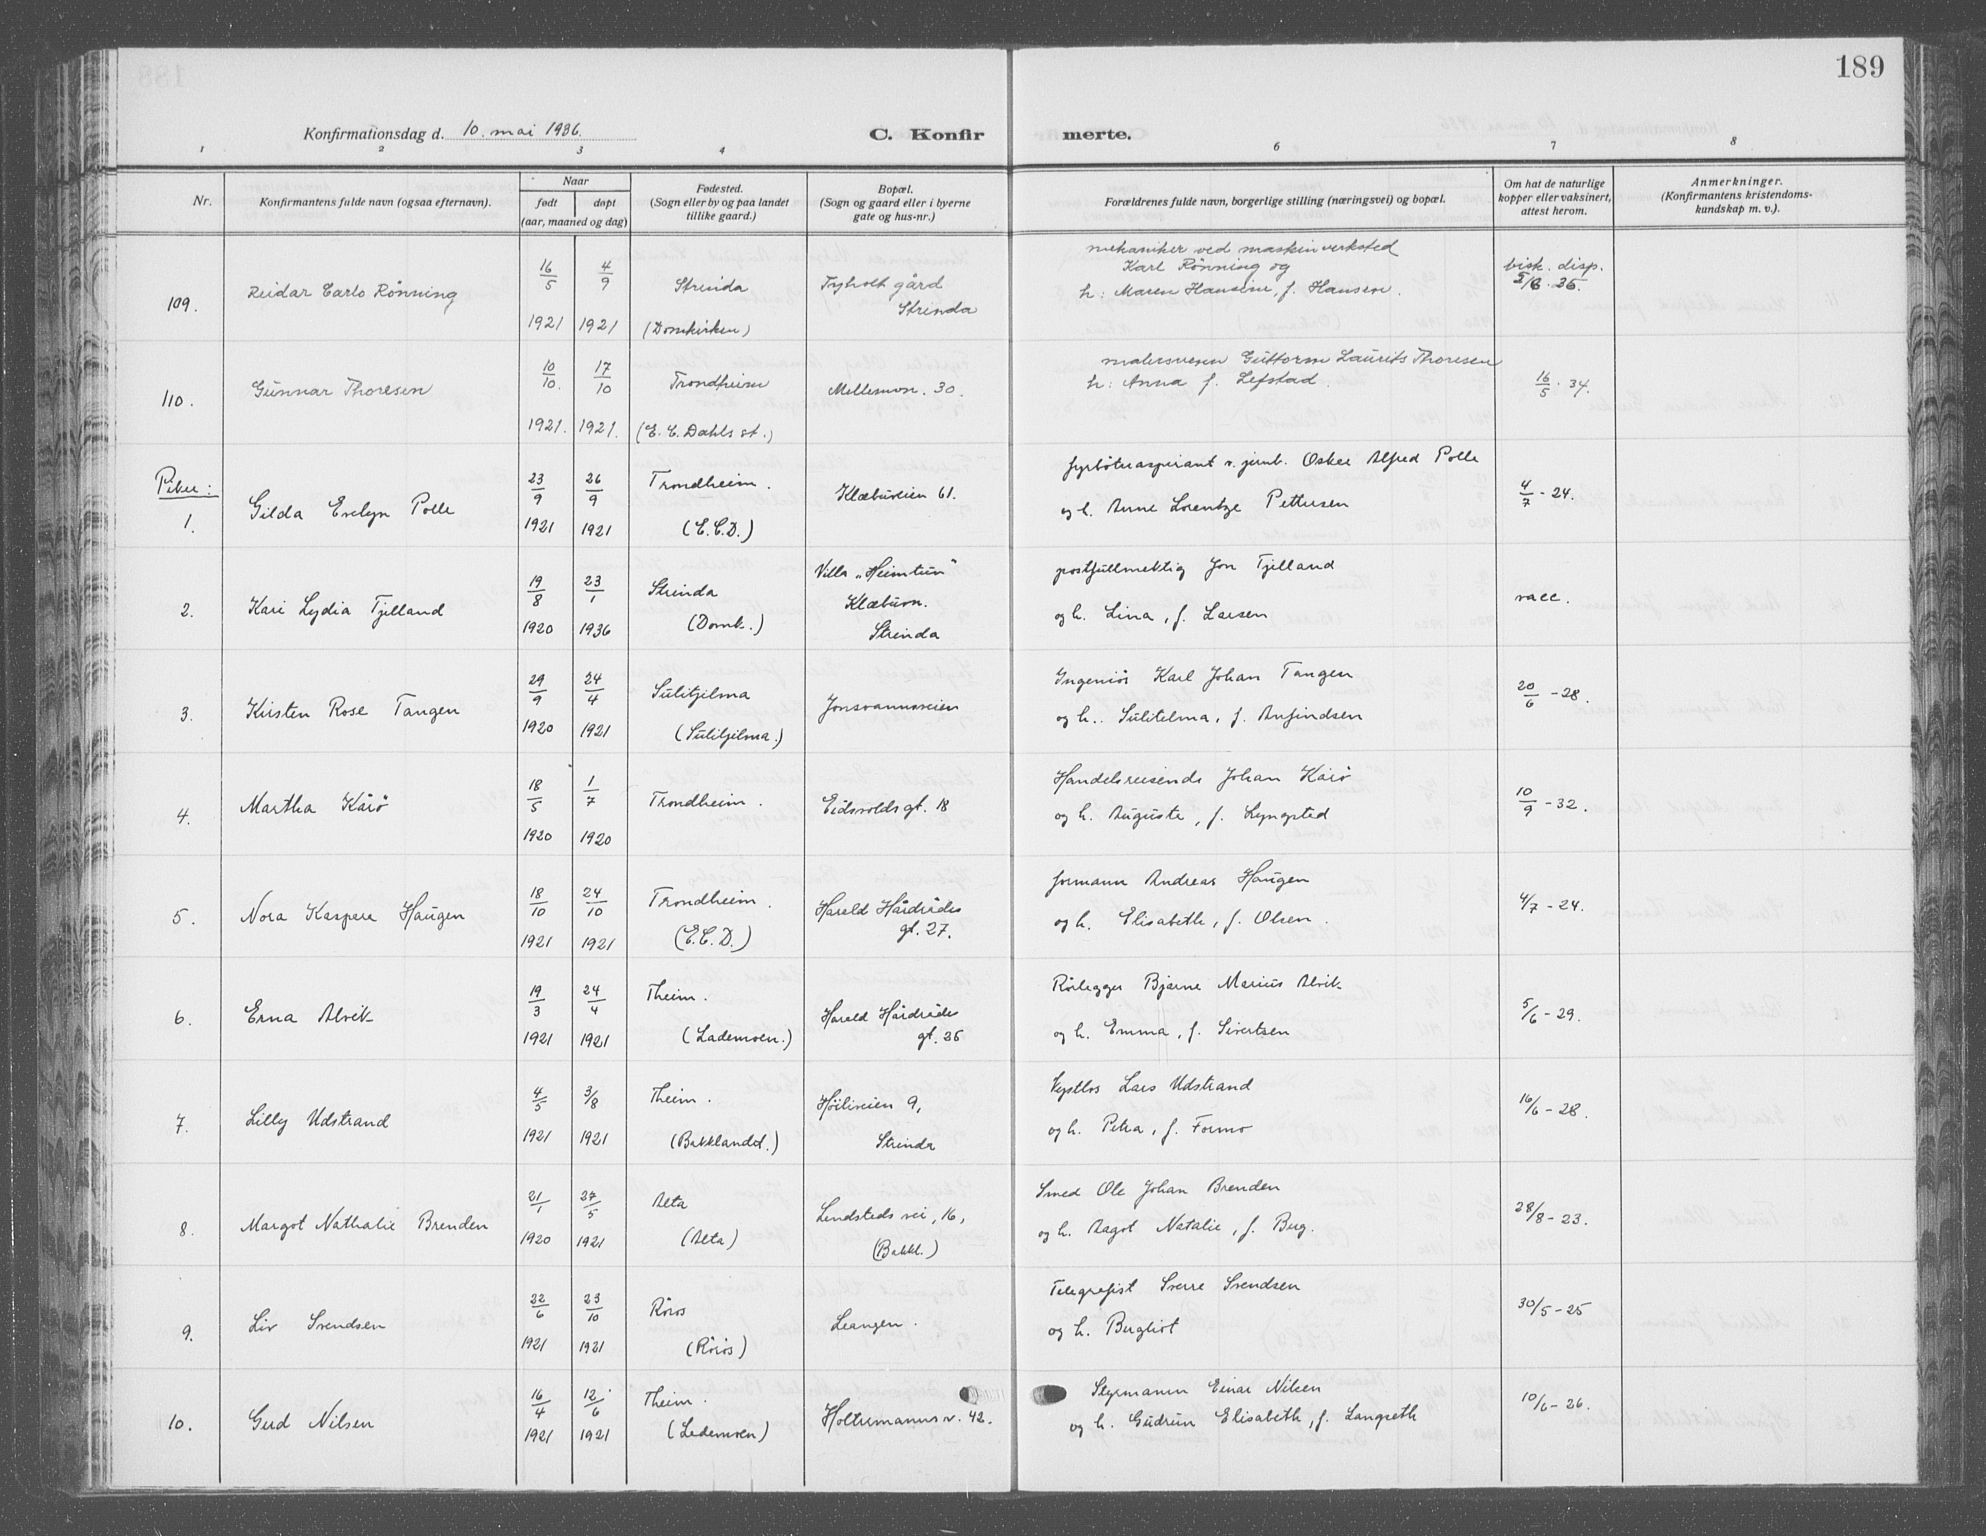 189
Konfirmationsdag d. 10. mai 1936.
C. Konfir merte.
1 2 3 4 6 7 8
Nr.
Konfirmantens fulde navn (ogsaa efternavn).
Naar
født døpt
(aar, maaned og dag)
Fødested.
(Sogn eller by og paa landet
tillike gaard.)
Bopæl.
(Sogn og gaard eller i byerne
gate og hus-nr.)
Forældrenes fulde navn, borgerlige stilling (næringsvei) og bopæl.
Om hat de naturlige
kopper eller vaksinert,
attest herom.
Anmerkninger.
(Konfirmantens kristendoms-
kundskap m. v.).
109. Reidar Carlo Rønning
16/5 1921
4/9 1921
Strinda
(Domkirken)
Tyholt gård
Strinda
mekaniker ved maskinverksted
Karl Rønning og
h: Maren Hansine, f. Hansen.
bisk. disp.
110. Gunnar Thoresen
10/10. 1921.
17/10 1921.
Trondheim
(E. C. Dahls st.)
Mellemvn. 30.
malersvenn Guttorm Laurits Thoresen
h: Anna f. Lefstad.
16/5. 34.
Piker:
1. Gilda Evelyn Polle
23/9 1921
26/9 1921
Trondheim.
(E.C.D.)
Klæbuveien 61.
fyrbøteraspirant v. jernb. Oskar Alfred Polle
og h. Anne Lorentze Pettersen
4/7 - 24.
2. Kari Lydia Tjelland
19/8 1920
23/1 1936
Strinda
(Domk.)
Villa „Heimtun"
Klæbuvn.
Strinda
postfullmektig Jon Tjelland
og h. Lina, f. Larsen
vacc.
3. Kirsten Rose Tangen
29/9 1920
24/4 1921
Sulitjelma
(Sulitjelma.)
Jonsvannsveien
Ingeniør Karl Johan Tangen
og h.. Sulitelma, f. Anfindsen
20/6 - 28.
4. Martha Kårø
18/5 1920
1/7 1920
Trondheim.
Eidsvolds gt. 18
Handelsreisende Johan Kårø
og h. Auguste, f. Lyngsted
10/9 - 32.
5. Nora Kaspara Haugen
18/10 1921
24/10 1921
Trondheim.
(E.C.D.)
Harald Hårdrådes
gt. 27.
formann Andreas Haugen
og h. Elisabeth, f. Olsen.
4/7 - 24.
6. Erna Alvik
19/3 1921
24/4 1921
Theim.
(Lademoen.)
Harald Hårdrådes
gt. 25
Rørlegger Bjarne Marius Alvik
og h. Emma, f. Sivertsen
5/6 - 29.
7. Lilly Udstrand
4/5 1921
3/8 1921
Theim.
(Bakklandet.)
Høiliveien 9,
Strinda
Lars Udstrand
og h. Petra, f. Formo
16/6 - 28.
8. Margot Nathalie Brenden
21/1 1920
27/5 1921
Alta
(Alta)
Lendsteds vei, 16,
(Bakkl.)
Smed Ole Johan Brenden
og h. Aagot Natalie, f. Berg.
28/8 - 23.
9. Liv Svendsen
22/6 1921
23/10 1921
Røros
(Røros)
Leangen.
Telegrafist Sverre Svendsen
og h. Bergliot
30/5 - 25
10. Gerd Nilsen
16/4 1921
12/6 1921
Theim.
(Lademoen)
Holtermanns v. 42.
Styrmann Einar Nilsen
og h. Gudrun Elisabeth, f. Langseth
10/6 - 26.